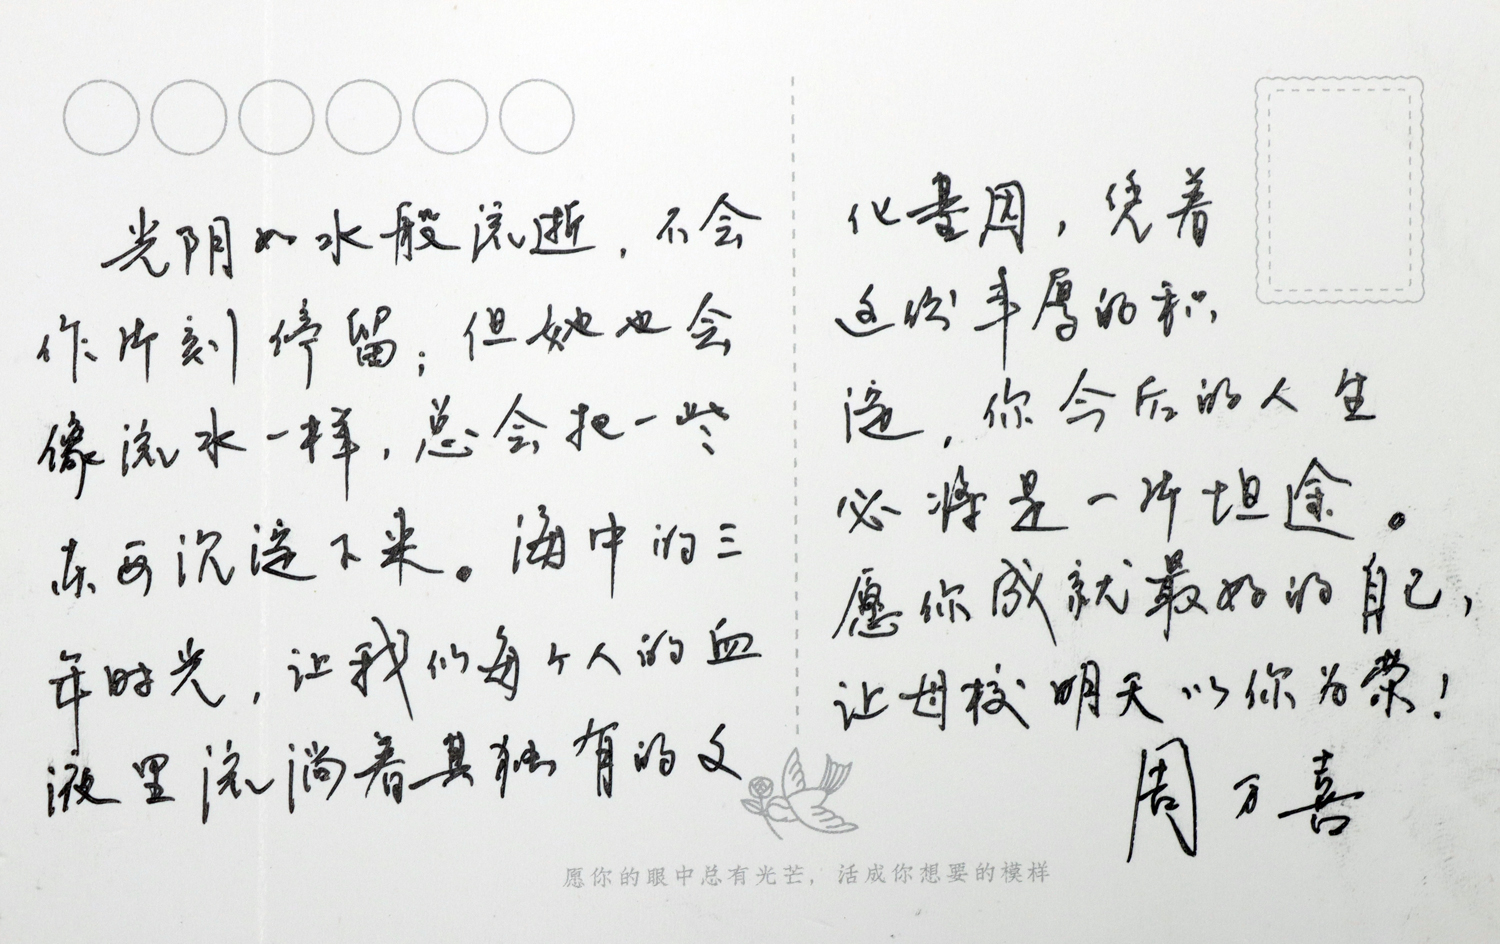 光阴如水般流逝，不会
作片刻停留；但她也会
像流水一样，总会把一些
东西沉淀下来。海中的三
年时光，让我们每个人的血
液里流淌着其独有的文
化基因，凭着
这份丰厚的积
淀，你今后的人生
必将是一片坦途。
愿你成就最好的自己，
让母校明天以你为荣！
周万喜
愿你的眼中总有光芒，活成你想要的模样